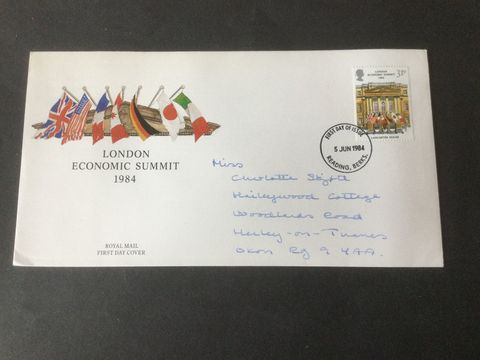 LONDON
ECONOMIC SUMMIT
1984
ROYAL MAIL
FIRST DAY COVER
LONDON
ECONOMIC SUMMIT
1984
31½P
LANCASTER HOUSE
FIRST DAY OF ISSUE
5 JUN 1984
READING, BERKS.
Miss
Charlotte
Haileywood Cottage
Woodlands Road
Henley-on-Thames
Oxon Rg 9 4AA.